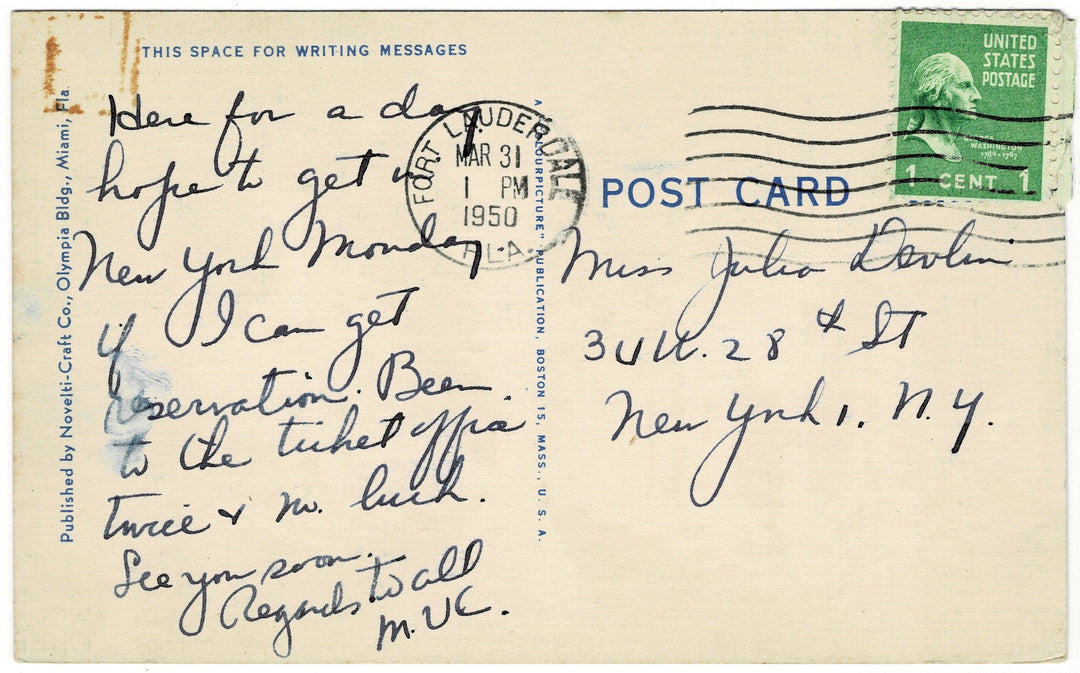 THIS SPACE FOR WRITING MESSAGES
Here for a day
hope to get
New York Monday
if I can get
reservation. Been
to the ticket office
twice & no. luck.
See you soon.
Regards to all
M.VC.
Published by Novelti-Craft Co., Olympia Bldg., Miami, Fla.
A "COLOURPICTURE" PUBLICATION, BOSTON 15, MASS., U. S. A.
FORT LAUDERDALE
MAR 31
1 PM
1950
FLA.
UNITED
STATES
POSTAGE
WASHINGTON
1789-1797
1 CENT 1
POST CARD
Miss Julia Devlin
28 St
New York 1, N.Y.